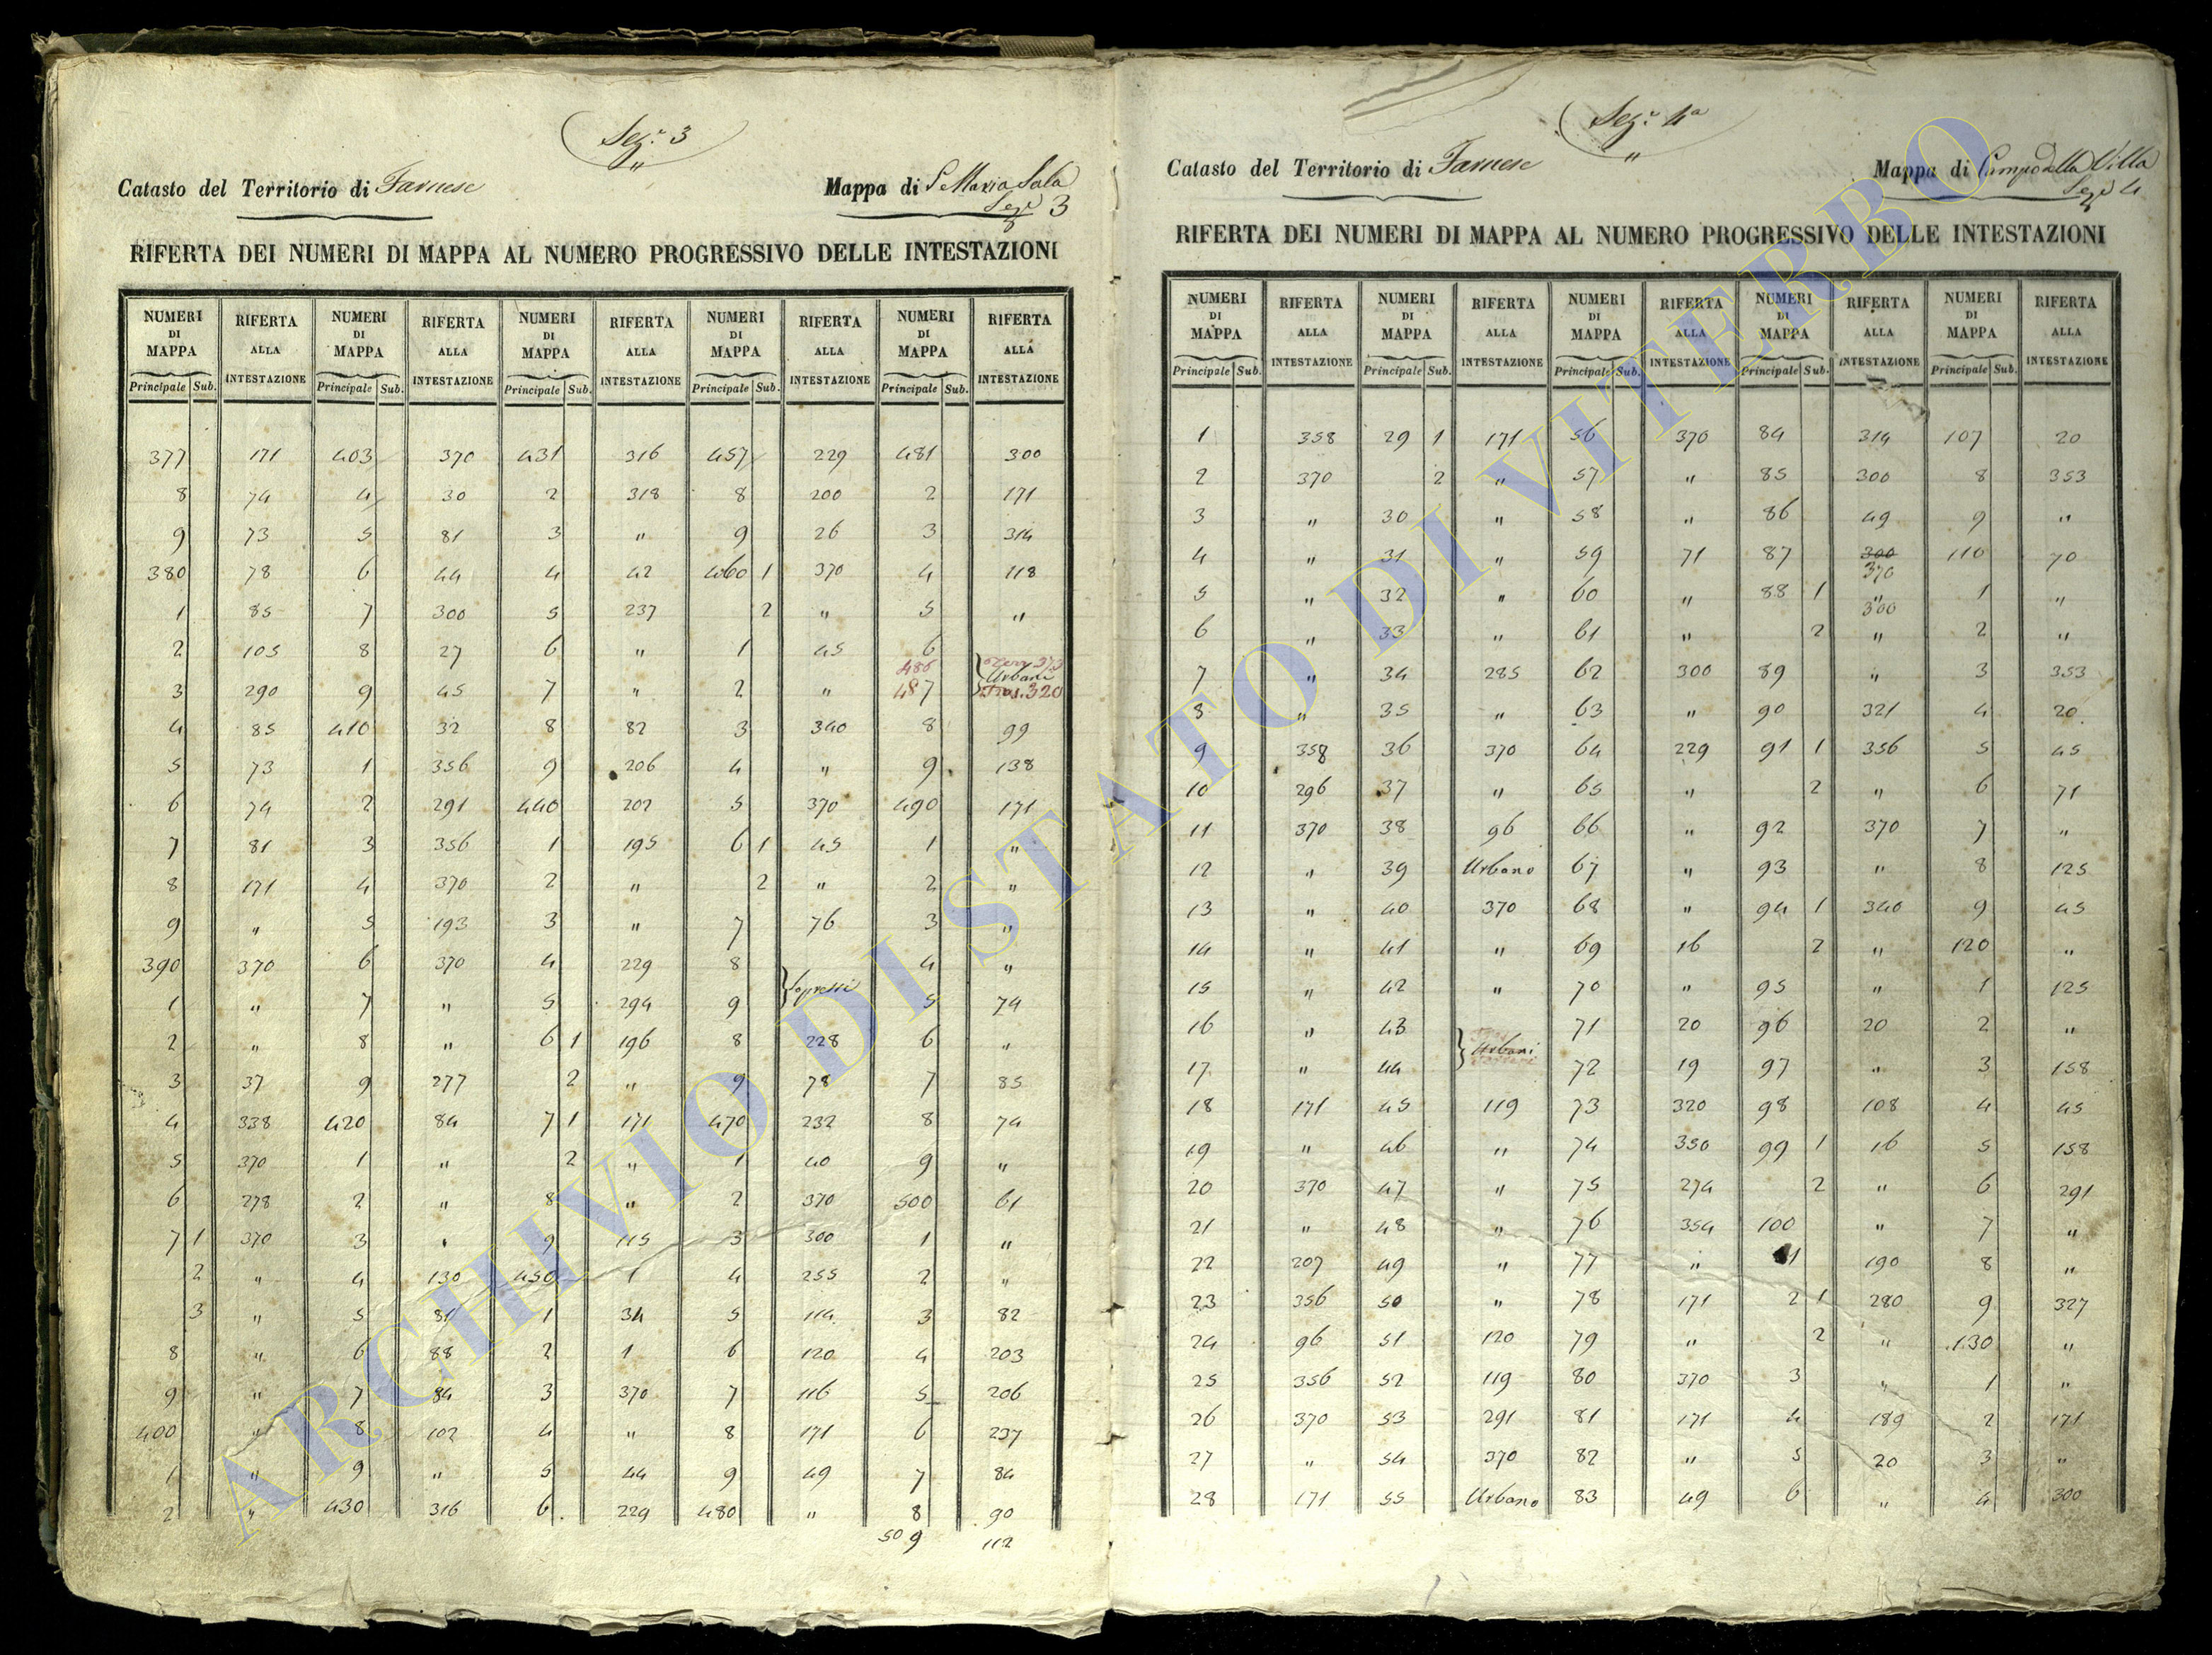 Sez.e 3
"
Catasto del Territorio di Farnese
Mappa di S Maria Sala
Seze 3
RIFERTA DEI NUMERI DI MAPPA AL NUMERO PROGRESSIVO DELLE INTESTAZIONI
NUMERI DI MAPPA RIFERTA ALLA INTESTAZIONE NUMERI DI MAPPA RIFERTA ALLA INTESTAZIONE NUMERI DI MAPPA RIFERTA ALLA INTESTAZIONE NUMERI DI MAPPA RIFERTA ALLA INTESTAZIONE NUMERI DI MAPPA RIFERTA ALLA INTESTAZIONE
Principale Sub. Principale Sub. Principale Sub. Principale Sub. Principale Sub.
377 171 403 370 431 316 457 229 481 300
8 74 4 30 2 318 8 200 2 171
9 73 5 81 3 " 9 26 3 314
380 78 6 44 4 42 460 1 370 4 118
1 85 7 300 5 237 2 " 5 "
2 105 8 27 6 " 1 45 6
486 Urbani
3 290 9 45 7 " 2 " 487 320
4 85 410 32 8 82 3 340 8 99
5 73 1 356 9 206 4 " 9 138
6 74 2 291 440 202 5 370 490 171
7 81 3 356 1 195 6 1 45 1 "
8 171 4 370 2 " 2 " 2 "
9 " 5 193 3 " 7 76 3 "
390 370 6 370 4 229 8 4 "
Sopressi
1 " 7 " 5 294 9 5 74
2 " 8 " 6 1 196 8 228 6 "
3 37 9 277 2 " 9 78 7 85
4 338 420 84 7 1 171 470 232 8 74
5 370 1 " 2 " 1 40 9 "
6 278 2 " 8 " 2 370 500 61
7 1 370 3 " 9 115 3 300 1 "
2 " 4 130 450 1 4 255 2 "
3 " 5 81 1 34 5 114 3 82
8 " 6 88 2 1 6 120 4 203
9 " 7 84 3 370 7 116 5 206
400 " 8 102 4 " 8 171 6 237
1 " 9 " 5 44 9 49 7 84
2 " 430 316 6 229 480 " 8 90
509 112
Sez.e 4a
"
Catasto del Territorio di Farnese
Mappa di Campo della Villa
Seze 4
RIFERTA DEI NUMERI DI MAPPA AL NUMERO PROGRESSIVO DELLE INTESTAZIONI
NUMERI DI MAPPA RIFERTA ALLA INTESTAZIONE NUMERI DI MAPPA RIFERTA ALLA INTESTAZIONE NUMERI DI MAPPA RIFERTA ALLA INTESTAZIONE NUMERI DI MAPPA RIFERTA ALLA INTESTAZIONE NUMERI DI MAPPA RIFERTA ALLA INTESTAZIONE
Principale Sub. Principale Sub. Principale Sub. Principale Sub. Principale Sub.
1 358 29 1 171 56 370 84 314 107 20
2 370 2 " 57 " 85 300 8 353
3 " 30 " 58 " 86 49 9 "
4 " 31 " 59 71 87 300 110 70
370
5 " 32 " 60 " 88 1 " 1 "
300
6 " 33 " 61 " 2 " 2 "
7 " 34 285 62 300 89 " 3 353
8 " 35 " 63 " 90 321 4 20
9 358 36 370 64 229 91 1 356 5 45
10 296 37 " 65 " 2 " 6 71
11 370 38 96 66 " 92 370 7 "
12 " 39 Urbano 67 " 93 " 8 125
13 " 40 370 68 " 94 1 340 9 45
14 " 41 " 69 16 2 " 120 "
15 " 42 " 70 " 95 " 1 125
16 " 43 71 20 96 20 2 "
Urbani
17 " 44 72 19 97 " 3 158
18 171 45 119 73 320 98 108 4 45
19 " 46 " 74 350 99 1 16 5 158
20 370 47 " 75 274 2 " 6 291
21 " 48 " 76 354 100 " 7 "
22 207 49 " 77 " 1 190 8 "
23 356 50 " 78 171 2 1 280 9 327
24 96 51 120 79 " 2 " 130 "
25 356 52 119 80 370 3 " 1 "
26 370 53 291 81 171 4 189 2 171
27 " 54 370 82 " 5 20 3 "
28 171 55 Urbano 83 49 6 " 4 300
ARCHIVIO DI STATO DI VITERBO